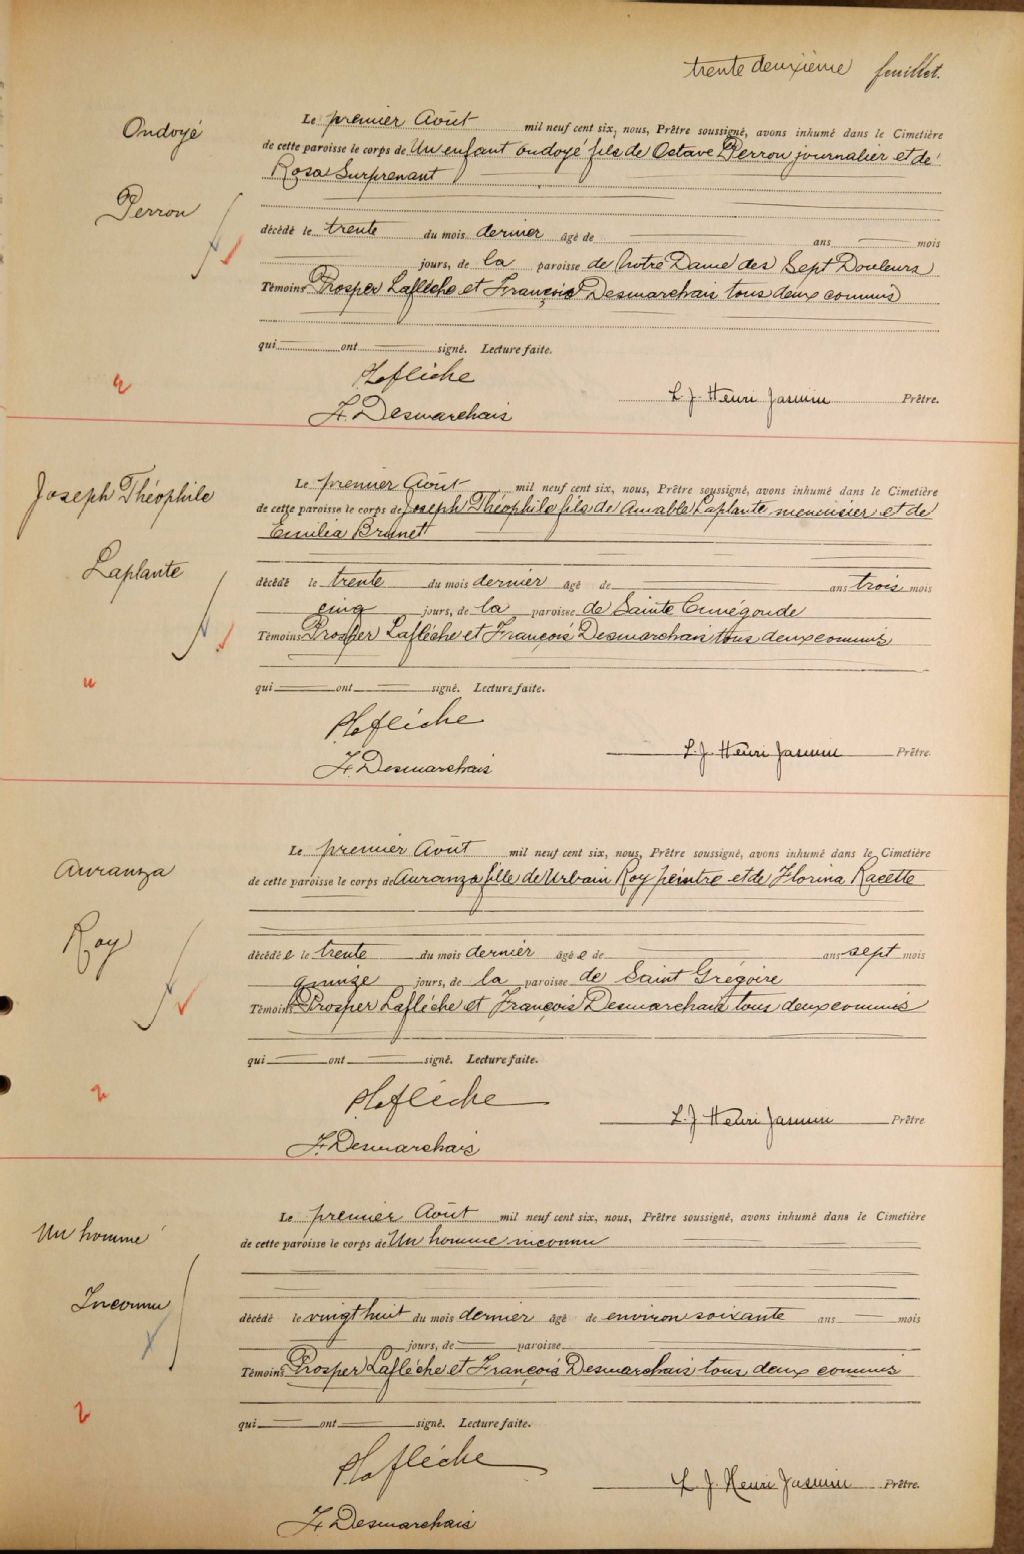 trente deuxième feuillet.
Ondoyé
Perron
Le premier Août mil neuf cent six, nous, Prêtre soussigné, avons inhumé dans le Cimetière
de cette paroisse le corps de Un enfant ondoyé fils de Octave Perron journalier et de
Rosa Surprenant
décédé le trente du mois dernier âgé de ans mois
jours, de la paroisse de Notre Dame des Sept Douleurs
Témoins Prosper Laflèche et François Desmarchais tous deux commis
qui ont signé. Lecture faite.
PLaflèche
F. Desmarchais
L. J. Henri Jasmin Prêtre.
Joseph Théophile
Laplante
Le premier Août mil neuf cent six, nous, Prêtre soussigné, avons inhumé dans le Cimetière
de cette paroisse le corps de Joseph Théophile fils de Amable Laplante menuisier et de
Emilia Brunet
décédé le trente du mois dernier âgé de ans trois mois
cinq jours, de la paroisse de Sainte Cunégonde
Témoins Prosper Laflèche et François Desmarchais tous deux commis
qui ont signé. Lecture faite.
PLaflèche
F. Desmarchais
L. J. Henri Jasmin Prêtre.
Auranza
Roy
Le premier Août mil neuf cent six, nous, Prêtre soussigné, avons inhumé dans le Cimetière
de cette paroisse le corps de Auranza fille de Urbain Roy peintre et de Florina Racette
décédée le trente du mois dernier âgée de ans sept mois
quinze jours, de la paroisse de Saint Grégoire
Témoins Prosper Laflèche et François Desmarchais tous deux commis
qui ont signé. Lecture faite.
PLaflèche
F. Desmarchais
L. J. Henri Jasmin Prêtre
Un homme
Inconnu
Le premier Août mil neuf cent six, nous, Prêtre soussigné, avons inhumé dans le Cimetière
de cette paroisse le corps de Un homme inconnu
décédé le vingt huit du mois dernier âgé de environ soixante ans mois
jours, de paroisse
Témoins Prosper Laflèche et François Desmarchais tous deux commis
qui ont signé. Lecture faite.
PLaflèche
F. Desmarchais
L. J. Henri Jasmin Prêtre.